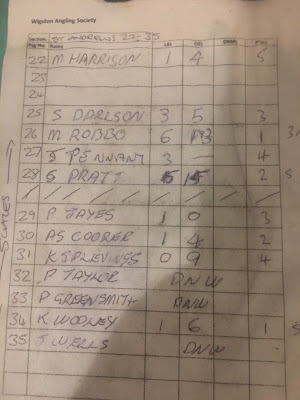 Wigston Angling Society
Section: ST ANDREWS 22-35
Peg No. Name LBs OZs DRMS P'nts
22 M HARRISON 1 4 5
23
24
25 S DARLSON 3 5 3
26 M ROBBO 6 13 1
27 S PENNANT 3 — 4
28 S PRATT 5 15 2
/ / / / / / / / / /
29 P JAYES 1 0 3
30 AS COOPER 1 4 2
31 K 0 9 4
32 P TAYLOR DNW
33 P GREENSMITH DNW
34 K WOOLEY 1 6 1
35 T WELLS DNW
SCALES